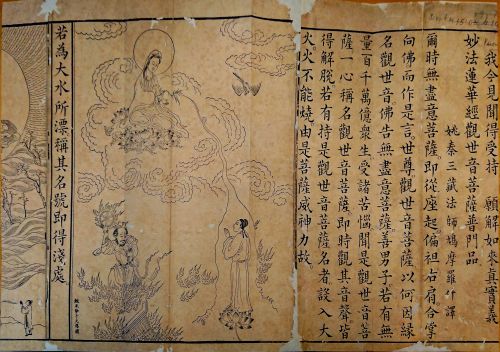 我今見聞得受持　願解如來真實義
妙法蓮華經觀世音菩薩普門品
姚秦三藏法師鳩摩羅什譯
爾時無盡意菩薩。即從座起。偏袒右肩合掌
向佛而作是言世尊觀世音菩薩以何因緣
名觀世音佛告無盡意菩薩善男子若有無
量百千萬億衆生受諸苦惱聞是觀世音菩
薩一心稱名觀世音菩薩即時觀其音聲皆
得解脫若有持是觀世音菩薩名者設入大
火火不能燒由是菩薩威神力故。
若為大水所漂稱其名號即得淺處